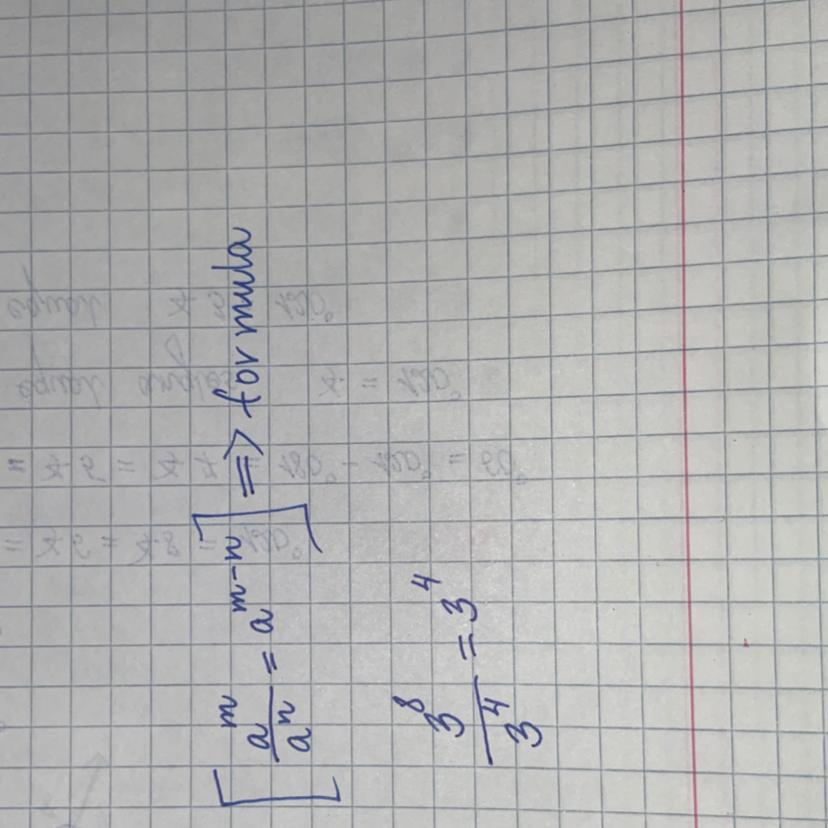 [a^m/a^n = a^(m-n)] => formula
3^8/3^4 = 3^4